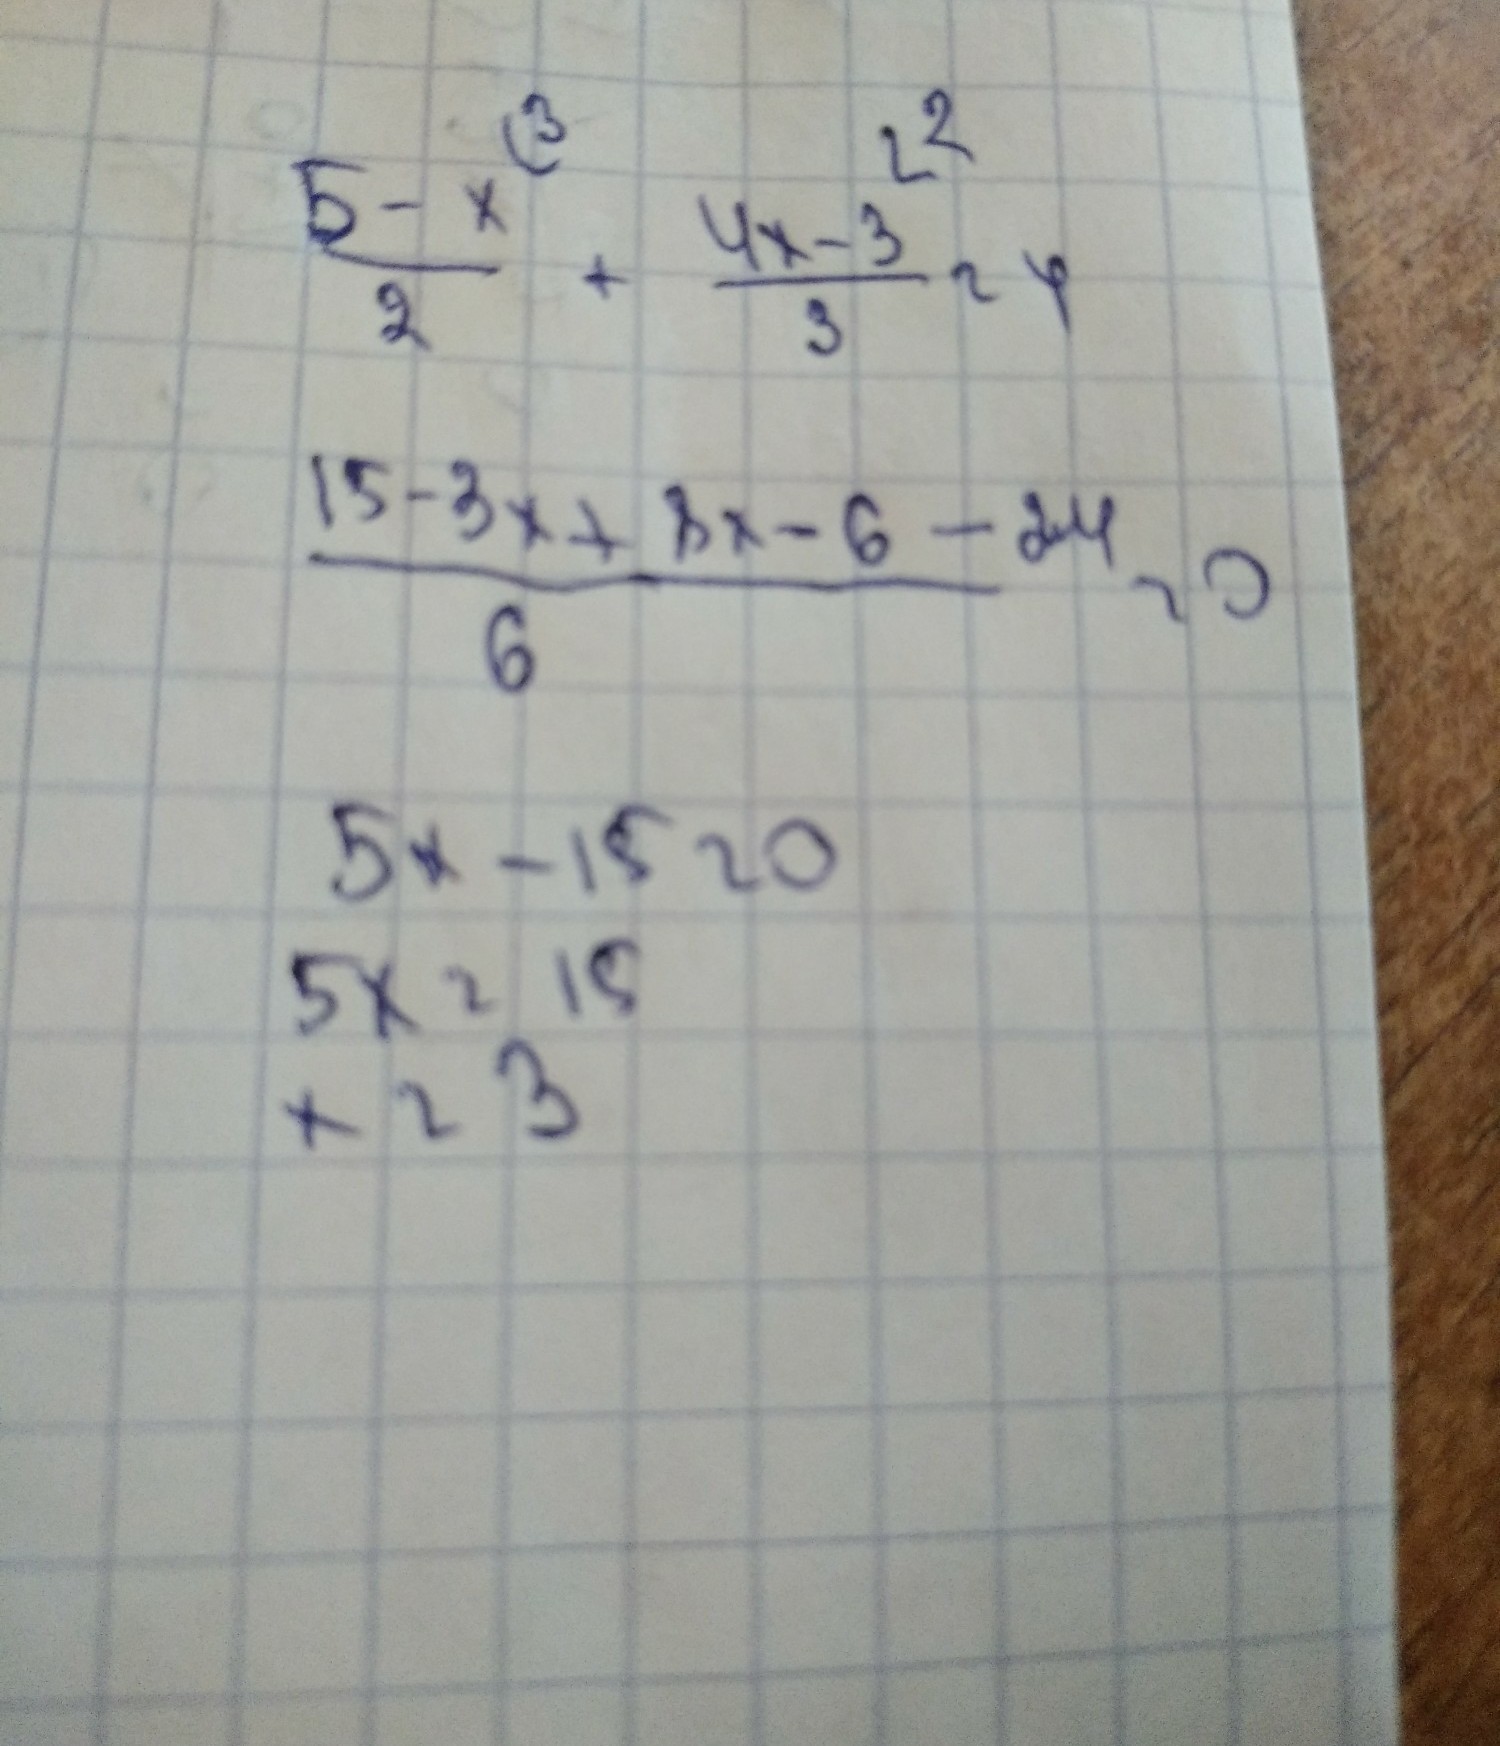 (5 - x)/2 ⁽³ + (4x - 3)/3 ⁽² = 4
(15 - 3x + 8x - 6 - 24)/6 = 0
5x - 15 = 0
5x = 15
x = 3